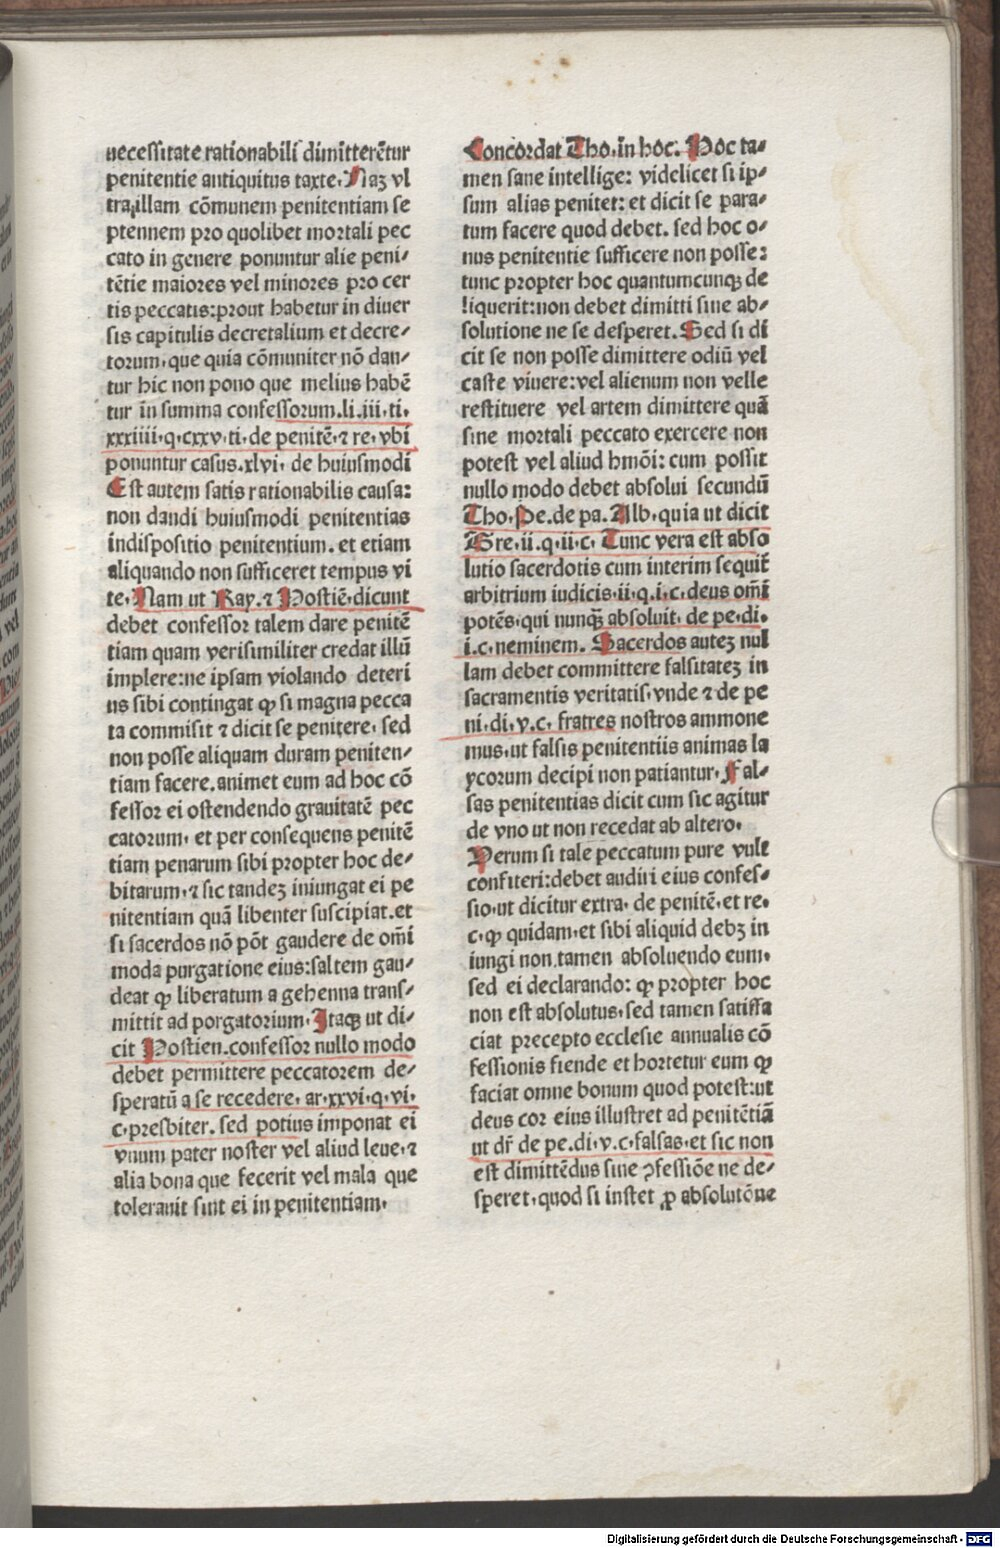 necessitate rationabili dimitterẽtur
penitentie antiquitus taxte. Naʒ vl
tra illam cõmunem penitentiam se
ptennem pro quolibet mortali pec
cato in genere ponuntur alie peni⸗
tẽtie maiores vel minores pro cer
tis peccatis: prout habetur in diuer
sis capitulis decretalium et decre⸗
torum. que quia cõmuniter nõ dan⸗
tur hic non pono que melius habẽ
tur in summa confessorum. li. iii. ti.
xxxiiii. q. cxxv. ti. de penitẽ. ⁊ re. vbi
ponuntur casus. xlvi. de huiusmodi
Est autem satis rationabilis causa:
non dandi huiusmodi penitentias
indispositio penitentium. et etiam
aliquando non sufficeret tempus vi
te. Nam ut Ray. ⁊ Hostiẽ. dicunt
debet confessor talem dare penitẽ
tiam quam verisimiliter credat illũ
implere: ne ipsam violando deteri
us sibi contingat ꝙ si magna pecca
ta commisit ⁊ dicit se penitere. sed
non posse aliquam duram peniten⸗
tiam facere. animet eum ad hoc cõ
fessor ei ostendendo grauitatẽ pec
catorum. et per consequens penitẽ
tiam penarum sibi propter hoc de⸗
bitarum. ⁊ sic tandeʒ iniungat ei pe
nitentiam quã libenter suscipiat. et
si sacerdos nõ põt gaudere de om̃i
moda purgatione eius: saltem gau⸗
deat ꝙ liberatum a gehenna trans⸗
mittit ad porgatorium. Itaqꝫ ut di⸗
cit Hostien. confessor nullo modo
debet permittere peccatorem de⸗
speratũ a se recedere. ar. xxvi. q. vi.
c. presbiter. sed potius imponat ei
vnum pater noster vel aliud leue. ⁊
alia bona que fecerit vel mala que
tolerauit sint ei in penitentiam.
Concordat Tho. in hoc. Hoc ta⸗
men sane intellige: videlicet si ip⸗
sum alias penitet: et dicit se para⸗
tum facere quod debet. sed hoc o⸗
nus penitentie sufficere non posse:
tunc propter hoc quantumcunqꝫ de
liquerit: non debet dimitti sine ab⸗
solutione ne se desperet. Sed si di
cit se non posse dimittere odiũ vel
caste viuere: vel alienum non velle
restituere vel artem dimittere quã
sine mortali peccato exercere non
potest vel aliud hmõi: cum possit
nullo modo debet absolui secundũ
Tho. Pe. de pa. Alb. quia ut dicit
Gre. ii. q. ii. c. Tunc vera est abso
lutio sacerdotis cum interim sequit̃
arbitrium iudicis. ii. q. i. c. deus om̃i
potẽs. qui nunqꝫ̃ absoluit. de pe. di.
i. c. neminem. Sacerdos auteʒ nul
lam debet committere falsitateʒ in
sacramentis veritatis. vnde ⁊ de pe
ni. di. v. c. fratres nostros ammone
mus. ut falsis penitentiis animas la
ycorum decipi non patiantur. Fal⸗
sas penitentias dicit cum sic agitur
de vno ut non recedat ab altero.
Verum si tale peccatum pure vult
confiteri: debet audiri eius confes⸗
sio. ut dicitur extra. de penitẽ. et re.
c. ꝙ quidam. et sibi aliquid debʒ in
iungi non. tamen absoluendo eum.
sed ei declarando: ꝙ propter hoc
non est absolutus. sed tamen satisfa
ciat precepto ecclesie annualis cõ
fessionis fiende et hortetur eum ꝙ
faciat omne bonum quod potest: ut
deus cor eius illustret ad penitẽtiã
ut dr̃ de pe. di. v. c. falsas. et sic non
est dimittẽdus sine ꝯfessiõe ne de⸗
speret. quod si instet ꝓ absolutõne
Digitalisierung gefördert durch die Deutsche Forschungsgemeinschaft - DFG